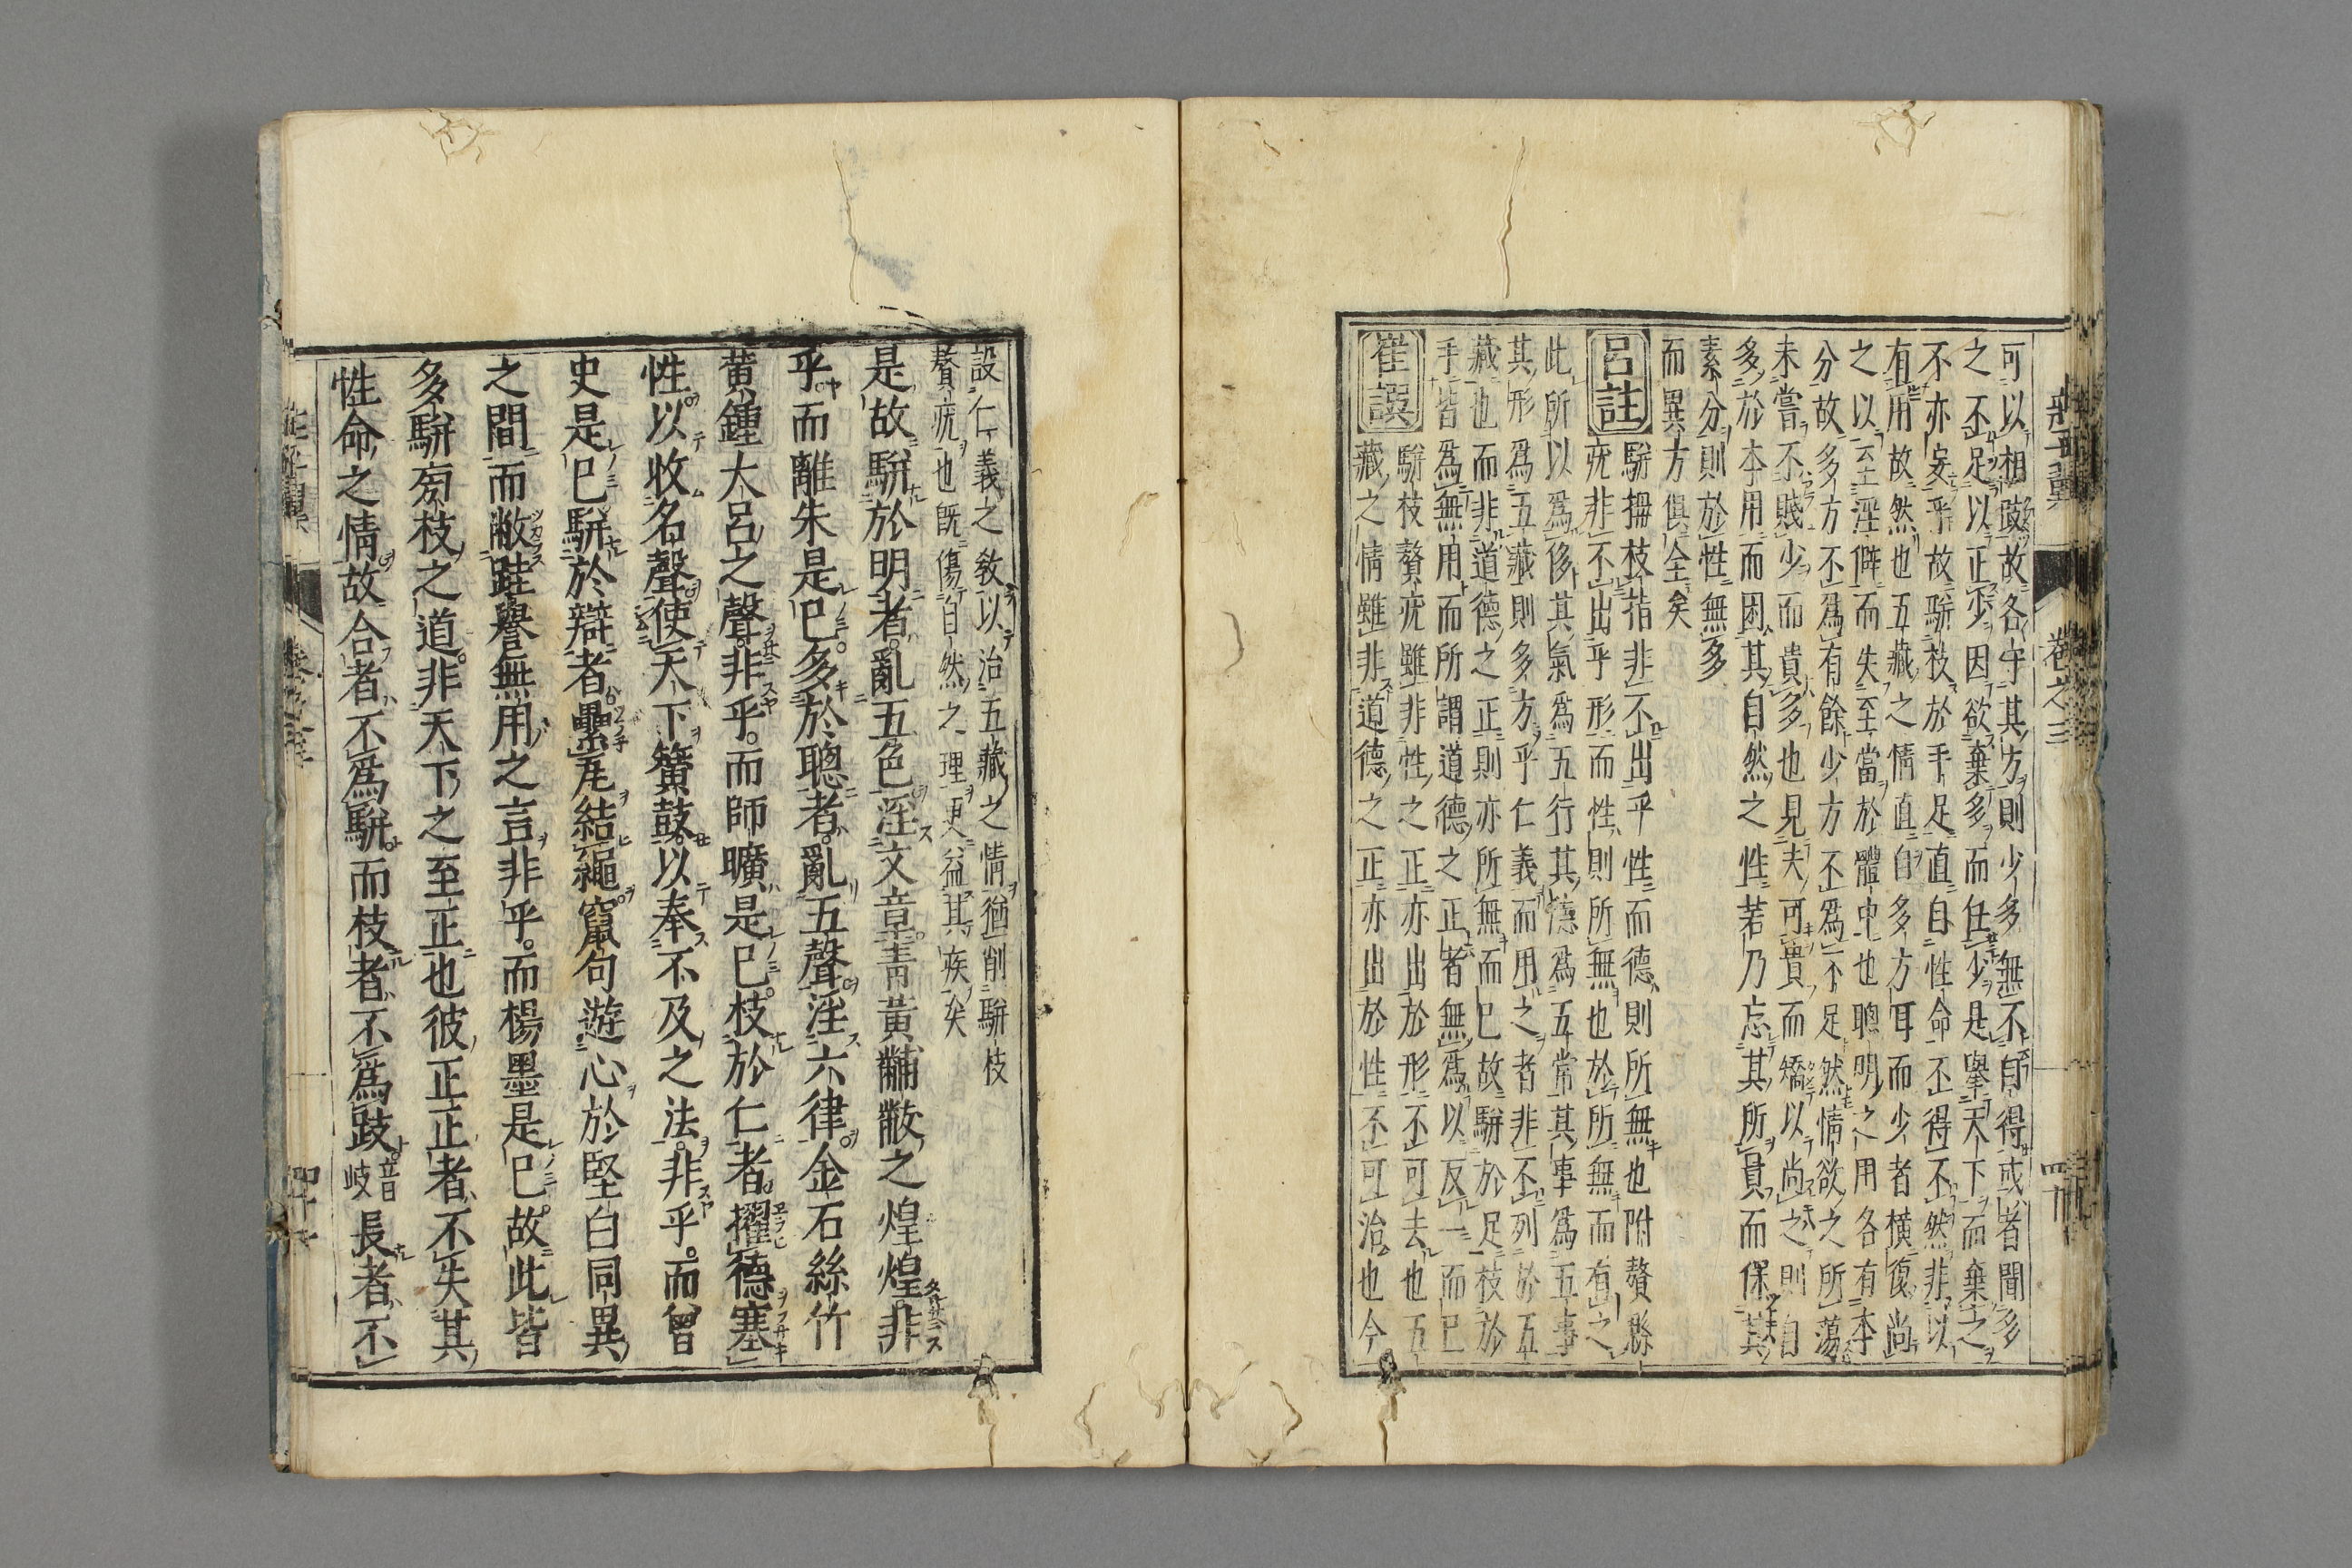 莊子翼 卷之三 四十
可以相跂故各守其方則少多無不自得或者聞多
之不足以正少因欲棄多而任少是舉天下而棄之
不亦妄乎故駢枝於手足直自性命不得不然非以
有用故然也五藏之情直自多方耳而少者橫復尚
之以至淫僻而失至當於體中也聰明之用各有本
分故多方不爲有餘少方不爲不足然情欲之所蕩
未嘗不賤少而貴多也見夫可貴而矯以尚之則自
多於本用而困其自然之性若乃忘其所貴而保其
素分則於性無多
而異方俱全矣
呂註
駢拇枝指非不出乎性而德則所無也附贅縣
疣非不出乎形而性則所無也於所無而有之
此所以爲侈其氣爲五行其德爲五常其事爲五事
其形爲五藏則多方乎仁義而用之者非不列於五
藏也而非道德之正則亦所無而已故駢於足枝於
手皆爲無用而所謂道德之正者無爲以反一而已
崔譔
駢枝贅疣雖非性之正亦出於形不可去也五
藏之情雖非道德之正亦出於性不可治也今
設仁義之敎以治五藏之情猶削駢枝
贅疣也既傷自然之理更益其疾矣
是故駢於明者亂五色淫文章青黃黼黻之煌煌非
乎而離朱是已多於聰者亂五聲淫六律金石絲竹
黃鍾大呂之聲非乎而師曠是已枝於仁者擢德塞
性以收名聲使天下簧鼓以奉不及之法非乎而曾
史是已駢於辯者纍瓦結繩竄句遊心於堅白同異
之間而敝跬譽無用之言非乎而楊墨是已故此皆
多駢旁枝之道非天下之至正也彼正正者不失其
性命之情故合者不爲駢而枝者不爲跂音岐長者不